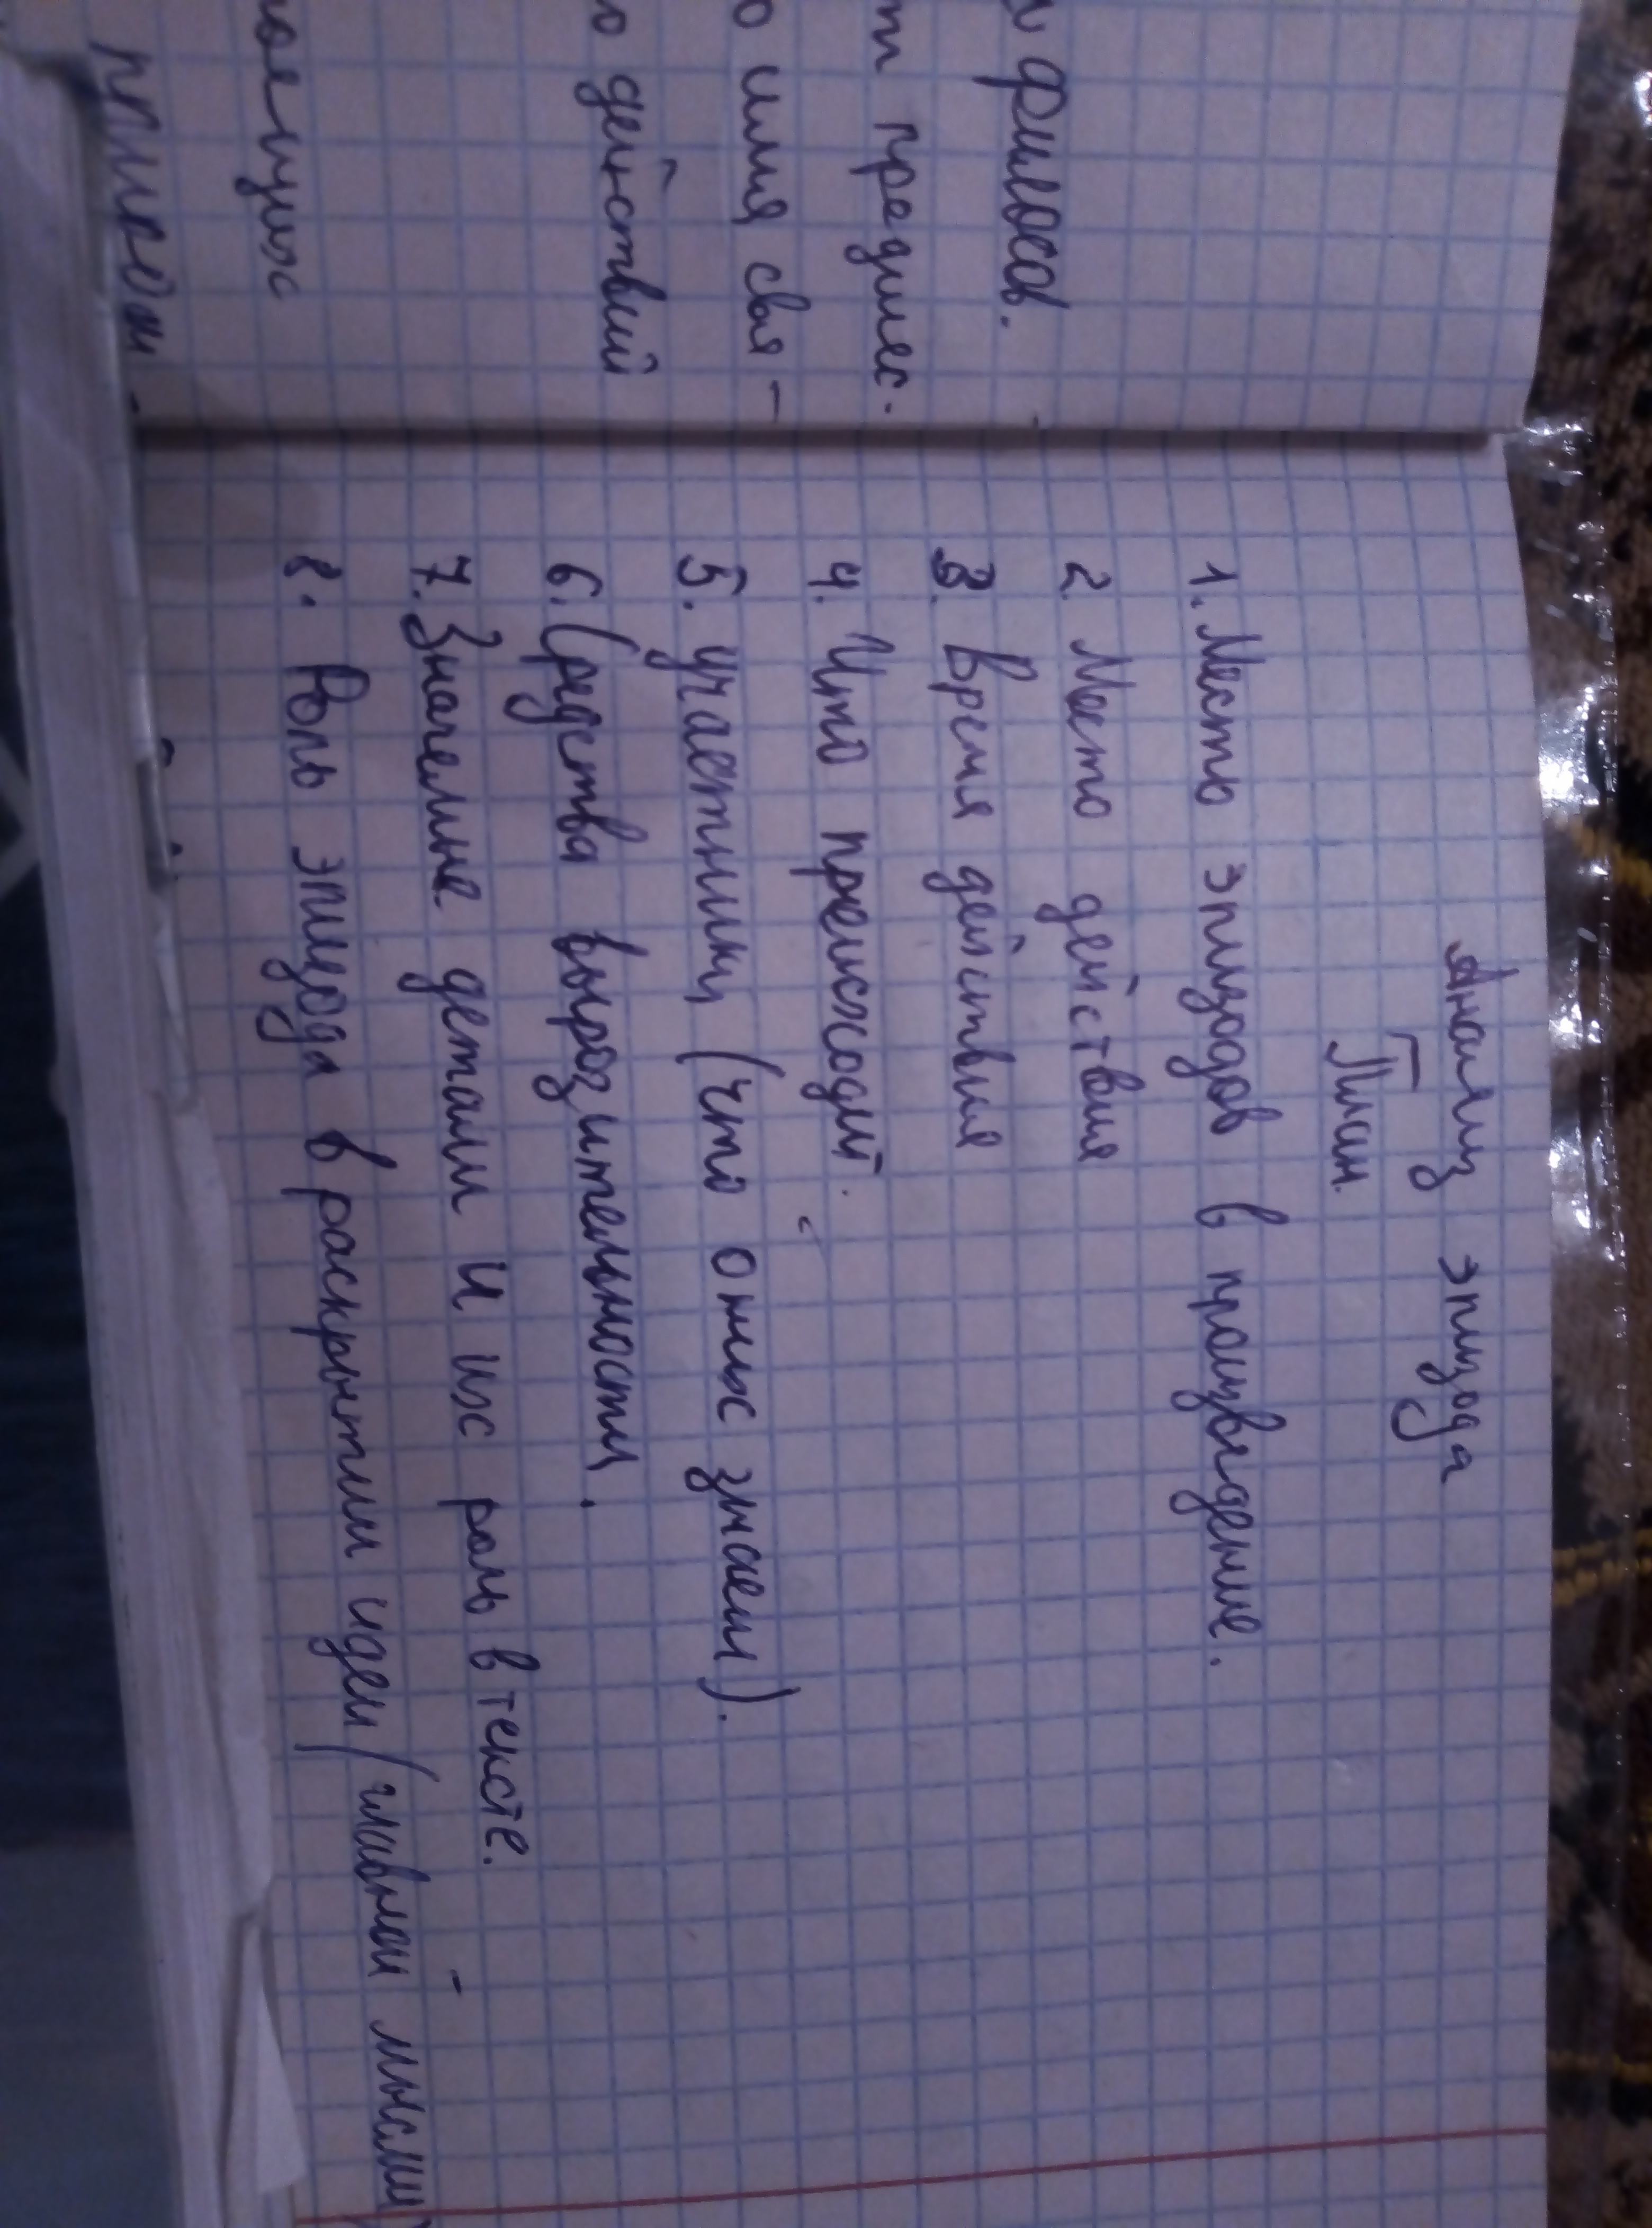 Анализ эпизода
План.
1. Место эпизодов в произведение.
2. Место действия
3. Время действия
4. Что происходит.
5. участники (что о них знаем).
6. Средства выразительности.
7. Значемые детали и их роль в тексте.
8. Роль эпизода в раскрытии идеи (главной мысли)
филосов.
т предмес.
о имя свя-
о действий